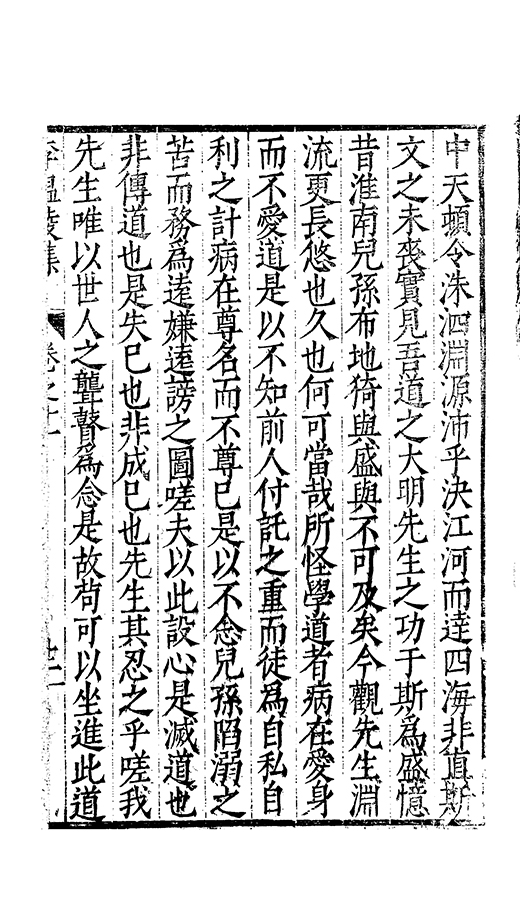 中天頓令洙泗淵源沛乎決江河而達四海非直斯
文之未喪實見吾道之大明先生之功于斯為盛憶
昔淮南兒孫布地猗與盛與不可及矣今觀先生淵
流更長悠也久也何可當哉所怪學道者病在愛身
而不愛道是以不知前人付託之重而徒為自私自
利之計病在尊名而不尊已是以不念兒孫陷溺之
苦而務為遠嫌遠謗之圖嗟夫以此設心是滅道也
非傳道也是失已也非成已也先生其忍之乎嗟我
先生唯以世人之聾瞽為念是故苟可以坐進此道
李温陵集 卷之十一 廿二